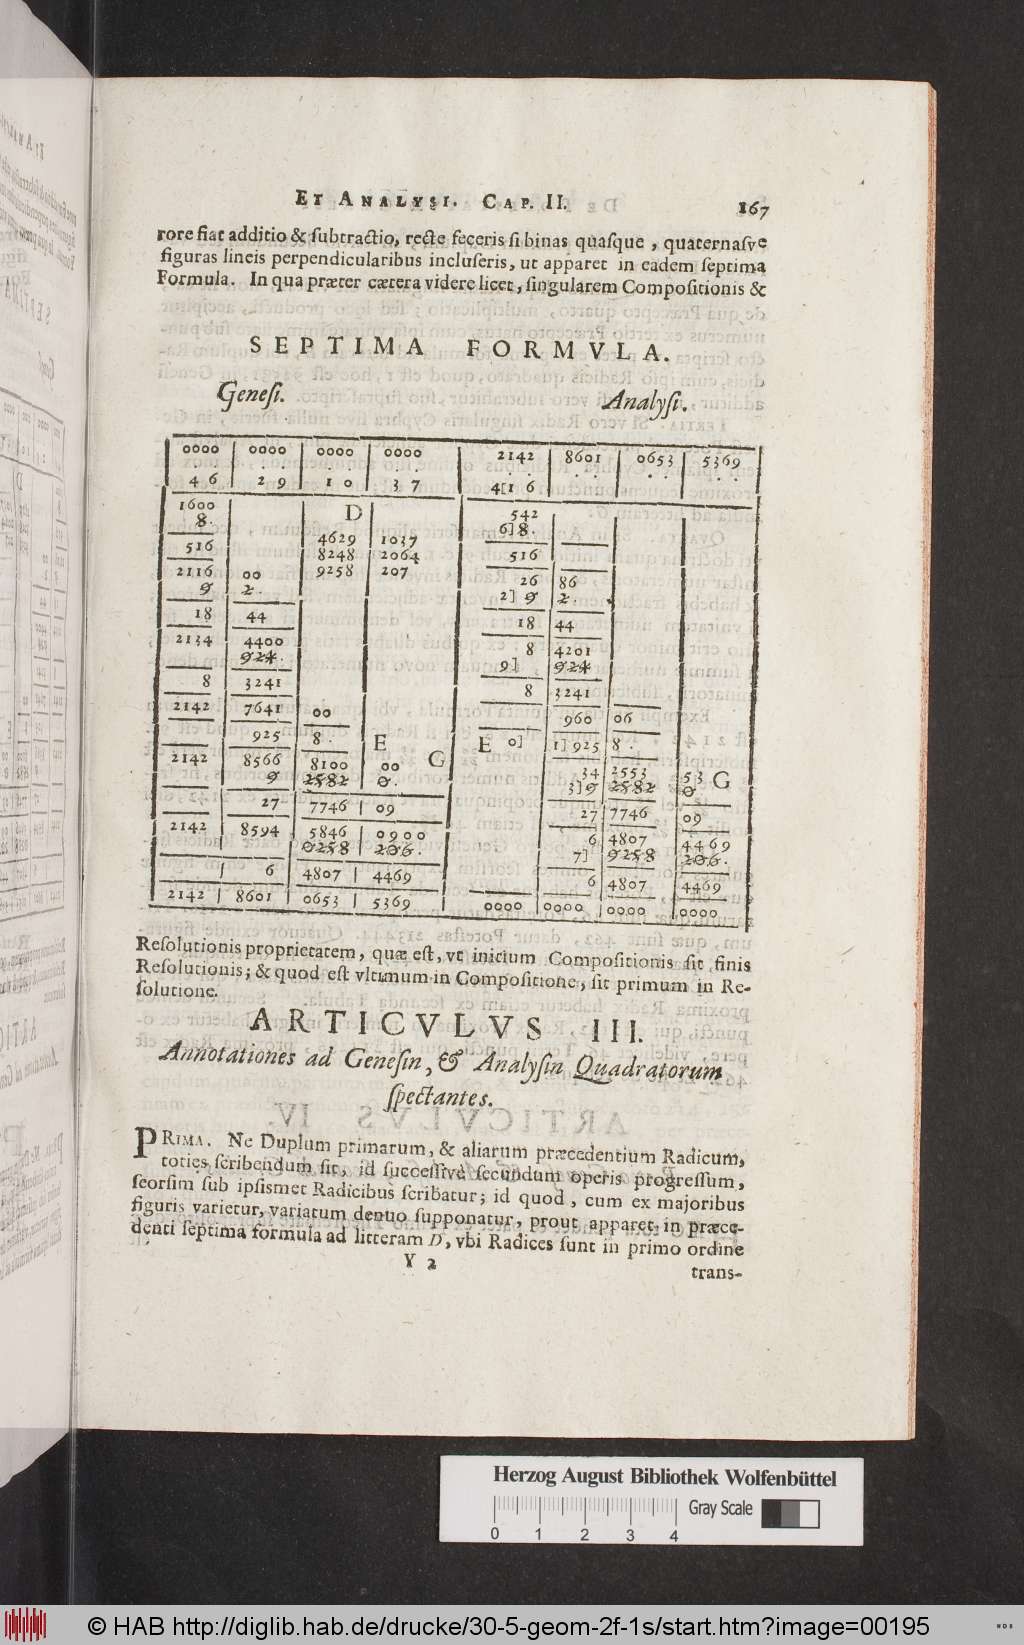 ET ANALYSI. CAP. II. 167
rore fiat additio & subtractio, recte feceris si binas quasque, quaternasve
figuras lineis perpendicularibus incluseris, ut apparet in eadem septima
Formula. In qua præter cætera videre licet, singularem Compositionis &
SEPTIMA FORMVLA.
Genesi. Analysi.
0000 | 0000 | 0000 | 0000 | 2142 | 8601 | 0653 | 5369
4 6 | 2 9 | 1 0 | 3 7 | 4[1 6
1600 D 542
8. 4629 1037 6]8.
516 8248 2064 516
2116 00 9258 207 26 86
9 2. 2] 9 2.
18 44 18 44
2134 4400 8 4201
924. 9] 924
8 3241 8 3241
2142 7641 00 960 06
925 8. E E 0] 1] 925 8.
2142 8566 8100 00 G 34 2553 53 G
9 2582 0. 3]9 2582 0
27 7746 09 27 7746 09
2142 8594 5846 0900 6 4807 4469
9258 206. 7] 9258 206.
6 4807 4469 6 4807 4469
2142 8601 0653 5369 0000 0000 0000 0000
Resolutionis proprietatem, quæ est, vt initium Compositionis sit finis
Resolutionis; & quod est vltimum in Compositione, sit primum in Re-
solutione.
ARTICVLVS III.
Annotationes ad Genesin, & Analysin Quadratorum
spectantes.
PRIMA. Ne Duplum primarum, & aliarum præcedentium Radicum,
toties scribendum sit, id successivè secundum operis progressum,
seorsim sub ipsismet Radicibus scribatur; id quod, cum ex majoribus
figuris varietur, variatum denuo supponatur, prout apparet in præce-
denti septima formula ad litteram D, vbi Radices sunt in primo ordine
Y 2 trans-
Herzog August Bibliothek Wolfenbüttel
Gray Scale
0 1 2 3 4
© HAB http://diglib.hab.de/drucke/30-5-geom-2f-1s/start.htm?image=00195